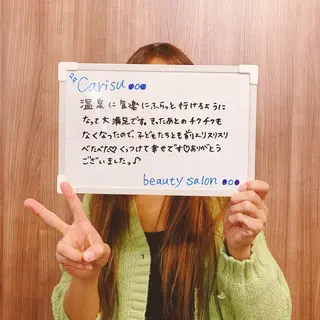 Carisu●●●
温泉に気楽にふらっと行けるように
なって大満足です。そったあとのチクチクも
なくなったので、子どもたちとも前よりスリスリ
べたべた♡くっつけて幸せです♡ありがとう
ございましたっ♪
beauty salon ●●●